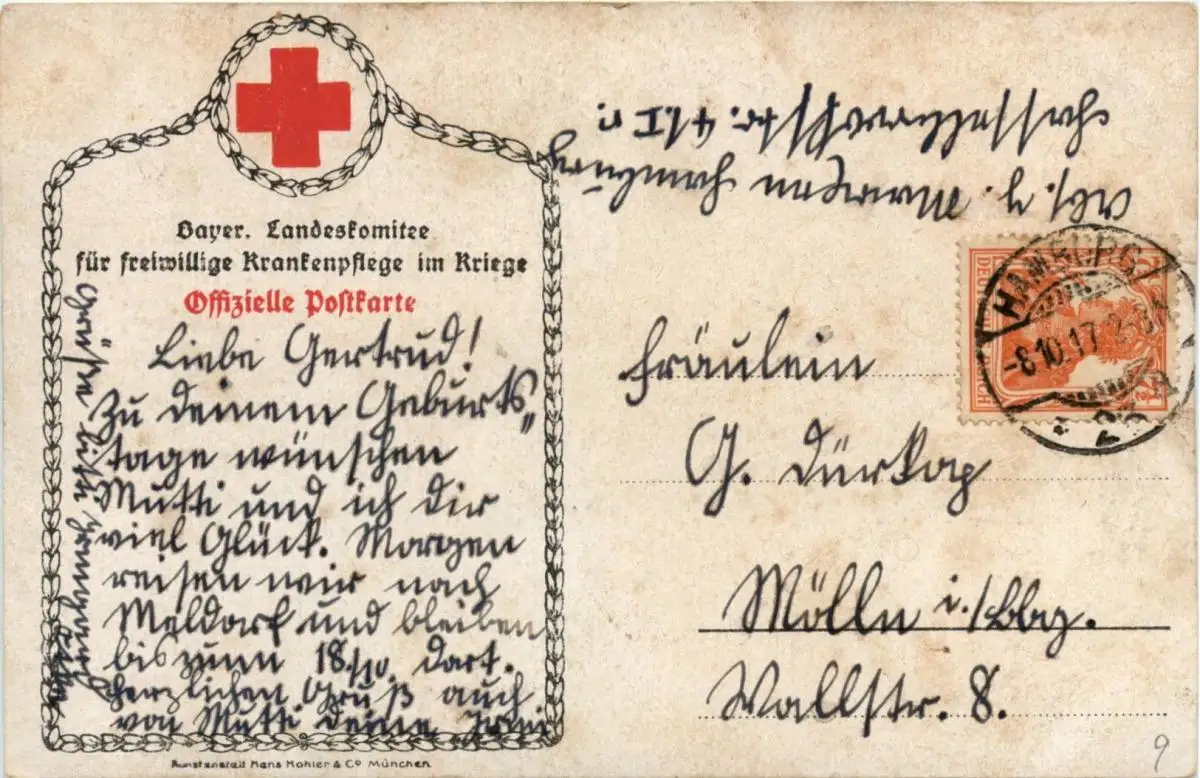 Bayer. Landeskomitee
für freiwillige Krankenpflege im Kriege
Offizielle Postkarte
Liebe Gertrud!
Zu deinem Geburts„
tage wünschen
Mutti und ich dir
viel Glück. Morgen
reisen wir nach
Meldorf und bleiben
bis zum 18./10. dort.
Herzlichen Gruß auch
von Mutti deine
Grüße bitte
Abs.
Hamburg
HAMBURG
-8.10.17. 2-3N
Fräulein
G. Dürkop
Mölln i./Lbg.
Wallstr. 8.
Kunstanstalt Hans Kohler & Co München
9